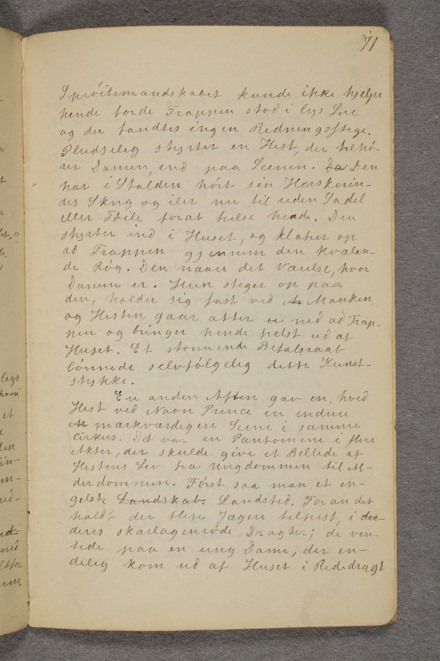 71
Sprøitemandskabet kunde ikke hjelpe
hende forde Trappen stod i lys Lue
og der fandtes ingen Redningsstige.
Pludselig styrter en Hest, der tilhø-
rer Damen, ind paa Scenen. Den
har i Stalden hørt sin Herskerin-
des Skrig og iler nu til uden Sadel
eller Bidsel forat frelse hende. Den
styrter ind i Huset, og klatrer op
ad Trappen gjennem den kvælen-
de Røg. Den naaer det Værelse, hvor
Damen er. Hun stiger op paa
den, holder sig fast ved Manken
og Hesten gaar atter ned ad Trap-
pen og bringer hende frelst ud af
Huset. Et stormende Bifaldsraab
lönnede selvfölgelig dette Kunst-
stykke.
En anden Aften gav en hvid
Hest ved Navn Prince en endnu
mærkværdigere Scene i samme
Cirkus. Det var en Pantomime i flere
Akter, der skulde give et Billede af
Hestens Lev fra Ungdommen til Al-
derdommen. Først saa man et en-
gelsk Landskab. Landsted. Foran det
holdt der flere Jægere tilhest, i
deres skarlagenröde Dragter; de ven-
tede paa en ung Dame, der en-
delig kom ud af Huset i Rededragt